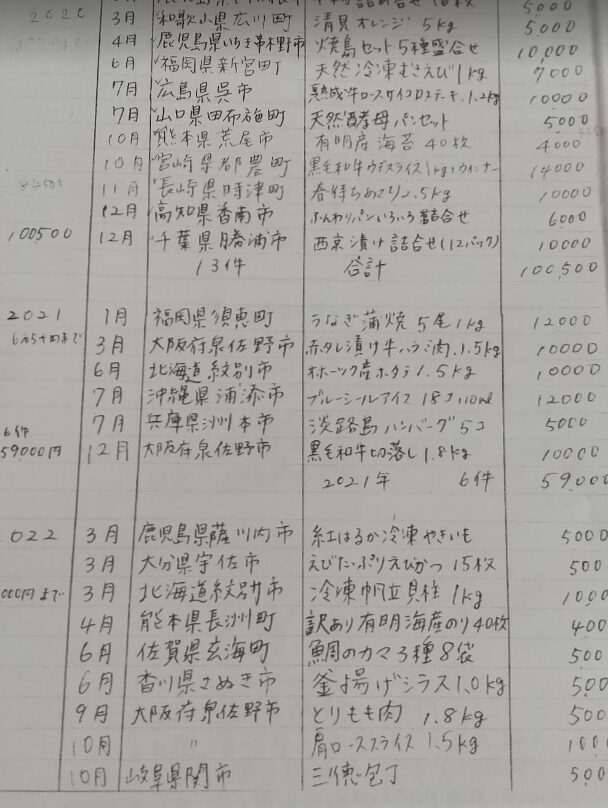 2020 3月 和歌山県広川町 清見オレンジ 5kg 5000
4月 鹿児島県いちき串木野市 焼鳥セット5種盛合せ 10,000
6月 福岡県新宮町 天然冷凍むきえび1kg 7000
7月 広島県呉市 熟成牛ロースサイコロステーキ.1.2kg 10000
7月 山口県田布施町 天然酵母パンセット 5000
10月 熊本県荒尾市 有明産海苔40枚 4000
10月 宮崎県都農町 黒毛和牛ウデスライス1kg+ウィンナー 14000
11月 長崎県時津町 春待ちあさり2.5kg 10000
12月 高知県香南市 ふんわりパンいろいろ詰合せ 6000
100500 12月 千葉県勝浦市 西京漬け詰合せ(12パック) 10000
13件 合計 100,500
2021 1月 福岡県須恵町 うなぎ蒲焼5尾1kg 12000
3月 大阪府泉佐野市 赤タレ漬け牛ハラミ肉.1.5kg 10000
6月 北海道紋別市 オホーツク産ホタテ1.5kg 10000
7月 沖縄県浦添市 ブルーシールアイス 18コ110ml 12000
7月 兵庫県洲本市 淡路島ハンバーグ5コ 5000
6件
59000円 12月 大阪府泉佐野市 黒毛和牛切落し1.8kg 10000
2021年 6件 59,000
022 3月 鹿児島県薩摩川内市 紅はるか冷凍やきいも 5000
3月 大分県宇佐市 えびたっぷりえびかつ15枚 500
000円まで 3月 北海道紋別市 冷凍帆立貝柱1kg 1000
4月 熊本県長洲町 訳あり有明海産のり40枚 400
6月 佐賀県玄海町 鯛のカマ3種8袋 500
6月 香川県さぬき市 釜揚げシラス1.0kg 500
9月 大阪府泉佐野市 とりもも肉 1.8kg 500
10月 〃 肩ローススライス1.5kg 100
10月 岐阜県関市 三徳包丁 500